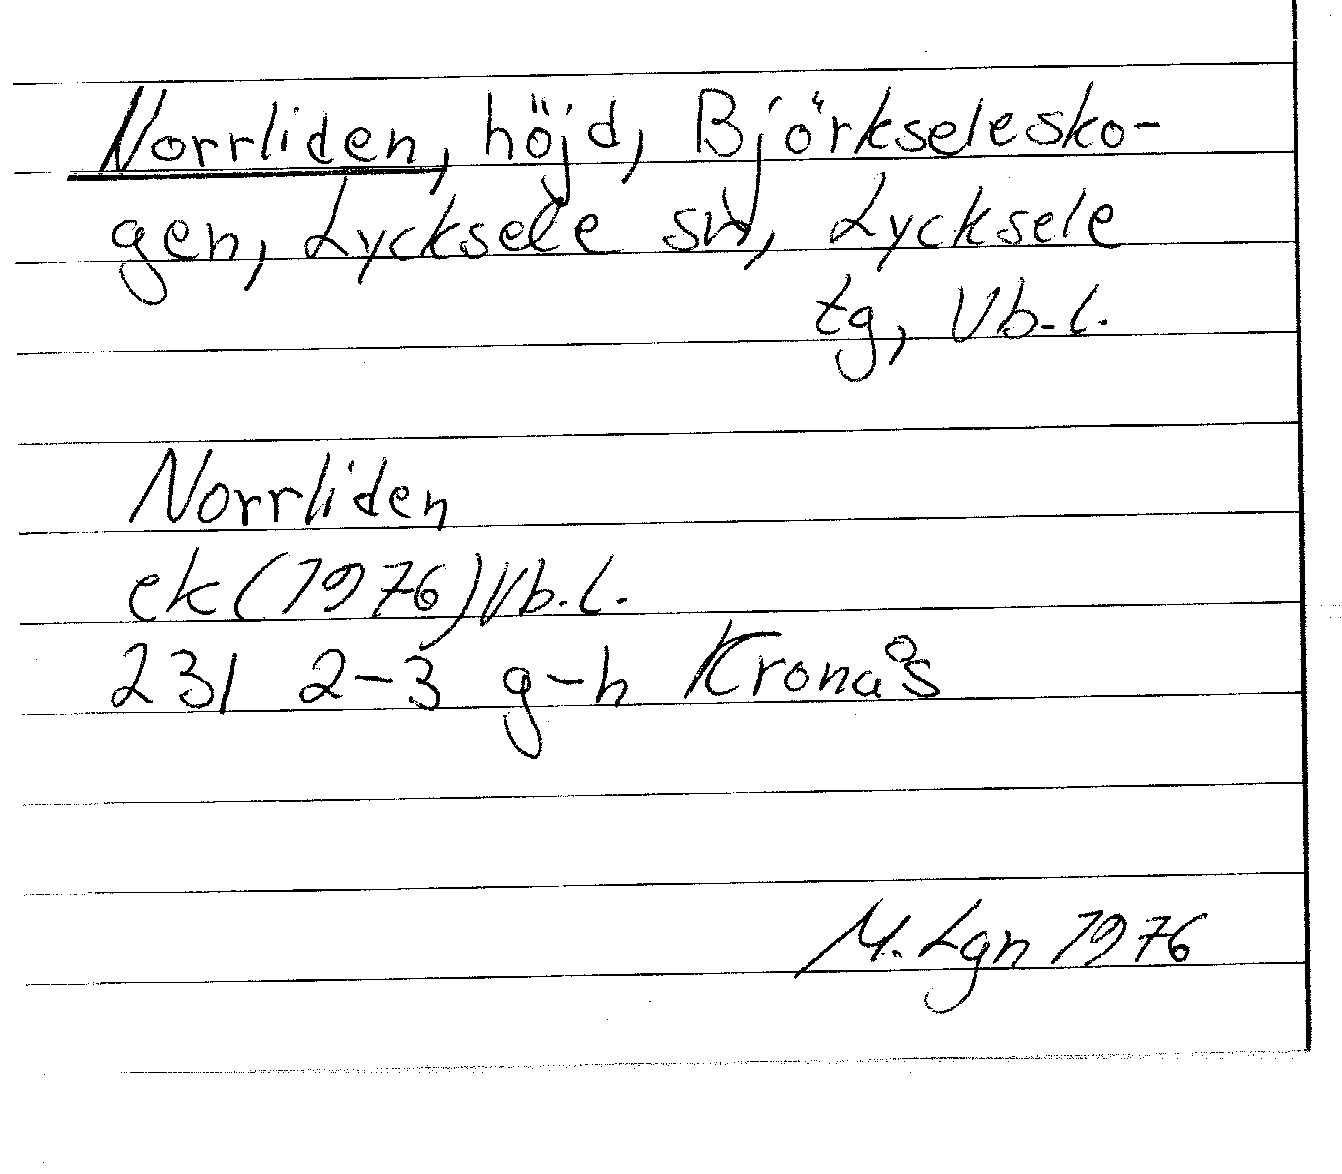 Norrliden, höjd, Björkselesko-
gen, Lycksele sn, Lycksele
tg, Vb. l.
Norrliden
ek (1976) Vb. l.
231 2-3 g-h Kronås
M. Lgn 1976